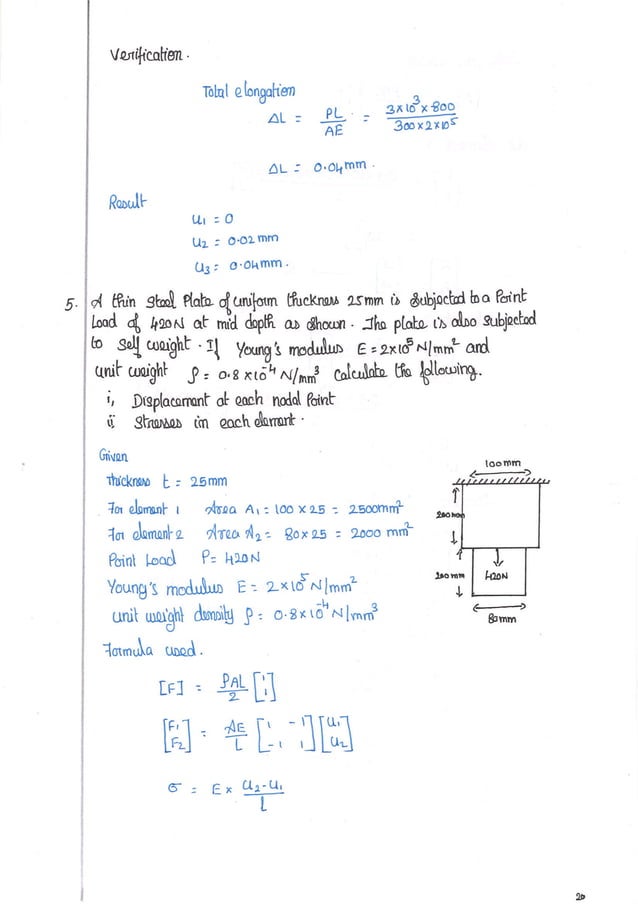 Verification.
Total elongation
ΔL = PL/AE = 3×10³×800/300×2×10⁵
ΔL = 0.04mm.
Result
u₁ = 0
u₂ = 0.02 mm
u₃ = 0.04mm.
5. A thin steel Plate of uniform thickness 25mm is subjected to a Point
Load of 420N at mid depth as shown. The plate is also subjected
to self weight. If Young's modulus E = 2×10⁵ N/mm² and
unit weight ρ = 0.8×10⁻⁴ N/mm³ Calculate the following.
i, Displacement at each nodal Point
ii, Stresses in each element.
Given
Thickness t = 25mm
For element 1 Area A₁ = 100 × 25 = 2500mm²
For element 2 Area A₂ = 80×25 = 2000 mm²
Point Load P = 420N
Young's modulus E = 2×10⁵ N/mm²
unit weight density ρ = 0.8×10⁻⁴ N/mm³
100mm
200mm
200 mm
420N
80mm
Formula used.
[F] = ρAL/2 [1 1]
[F₁ F₂] = AE/L [1 -1 -1 1] [u₁ u₂]
σ = E × u₂-u₁/L
20